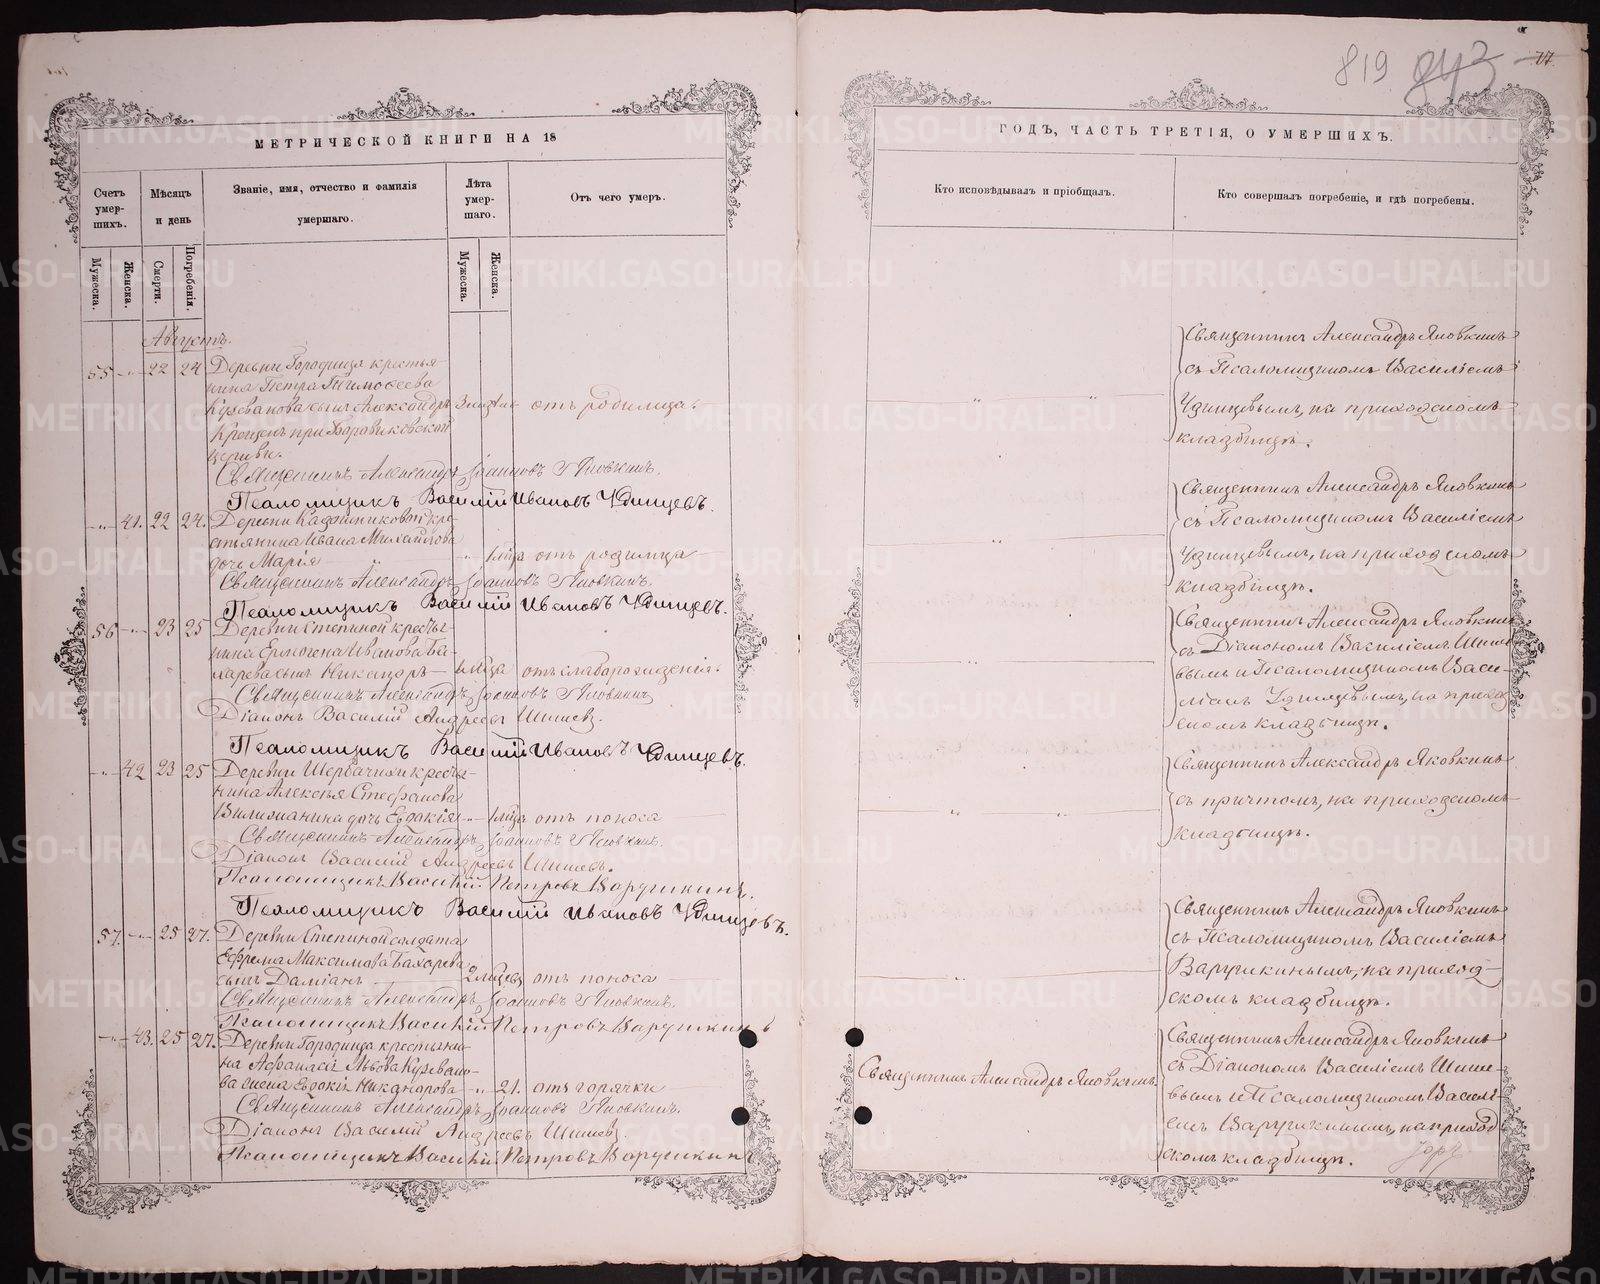 819 843 77
МЕТРИЧЕСКОЙ КНИГИ НА 18
Счетъ умер-шихъ.
Мѣсяцъ и день
Званіе, имя, отчество и фамилія умершаго.
Лѣта умер-шаго.
Отъ чего умеръ.
Мужеска.
Женска.
Смерти.
Погребенія.
Мужеска.
Женска.
Августъ.
55 -„- 22 24 Деревни Городища крестья-
нина Петра Тимофеева
сынъ Александръ отъ родимца.
Крещенъ при Боровиковской
церкви.
Священникъ Александръ Іоанновъ Яковкинъ.
Псаломщикъ Василій Ивановъ Удинцевъ.
-„- 41. 22 24. Деревни кре-
стьянина Ивана Михайлова
дочь Марія отъ родимца
Священникъ Александръ Іоанновъ Яковкинъ.
Псаломщикъ Василій Ивановъ Удинцевъ.
56 -„- 23 25 Деревни Степиной крестья-
нина Ермогена Иванова Ба-
харева сынъ Никаноръ отъ слаборожденія.
Священникъ Александръ Іоанновъ Яковкинъ
Діаконъ Василій Андреевъ Шишевъ.
Псаломщикъ Василій Ивановъ Удинцевъ.
-„- 42 23 25 Деревни крестья-
нина Алексѣя Стефанова
дочь Евдокія отъ поноса
Священникъ Александръ Іоанновъ Яковкинъ.
Діаконъ Василій Андреевъ Шишевъ.
Псаломщикъ Василій Петровъ Варушкинъ.
Псаломщикъ Василій Ивановъ Удинцевъ.
57. -„- 25 27. Деревни Степиной солдата
Ефрема Максимова Бахарева
сынъ Даміанъ отъ поноса
Священникъ Александръ Іоанновъ Яковкинъ.
Псаломщикъ Василій Петровъ Варушкинъ
-„- 43. 25 27. Деревни Городища крестьяни-
на Афанасія Львова
жена Евдокія Никанорова -„- 21. отъ горячки
Священникъ Александръ Іоанновъ Яковкинъ.
Діаконъ Василій Андреевъ Шишевъ.
Псаломщикъ Василій Петровъ Варушкинъ
ГОДЪ, ЧАСТЬ ТРЕТІЯ, О УМЕРШИХЪ.
Кто исповѣдывалъ и пріобщалъ.
Кто совершалъ погребеніе, и гдѣ погребены.
Священникъ Александръ Яковкинъ
съ Псаломщикомъ Василіемъ
Удинцевымъ, на приходскомъ
кладбищѣ.
Священникъ Александръ Яковкинъ
съ Псаломщикомъ Василіемъ
Удинцевымъ, на приходскомъ
кладбищѣ.
Священникъ Александръ Яковкинъ
съ Діакономъ Василіемъ Шише-
вымъ и Псаломщикомъ Васи-
ліемъ Удинцевымъ, на приход-
скомъ кладбищѣ.
Священникъ Александръ Яковкинъ
съ причтомъ, на приходскомъ
кладбищѣ.
Священникъ Александръ Яковкинъ
съ Псаломщикомъ Василіемъ
Варушкинымъ, на приход-
скомъ кладбищѣ.
Священникъ Александръ Яковкинъ
Священникъ Александръ Яковкинъ
съ Діакономъ Василіемъ Шише-
вымъ и Псаломщикомъ Василі-
емъ Варушкинымъ, на приход-
скомъ кладбищѣ.
METRIKI.GASO-URAL.RU